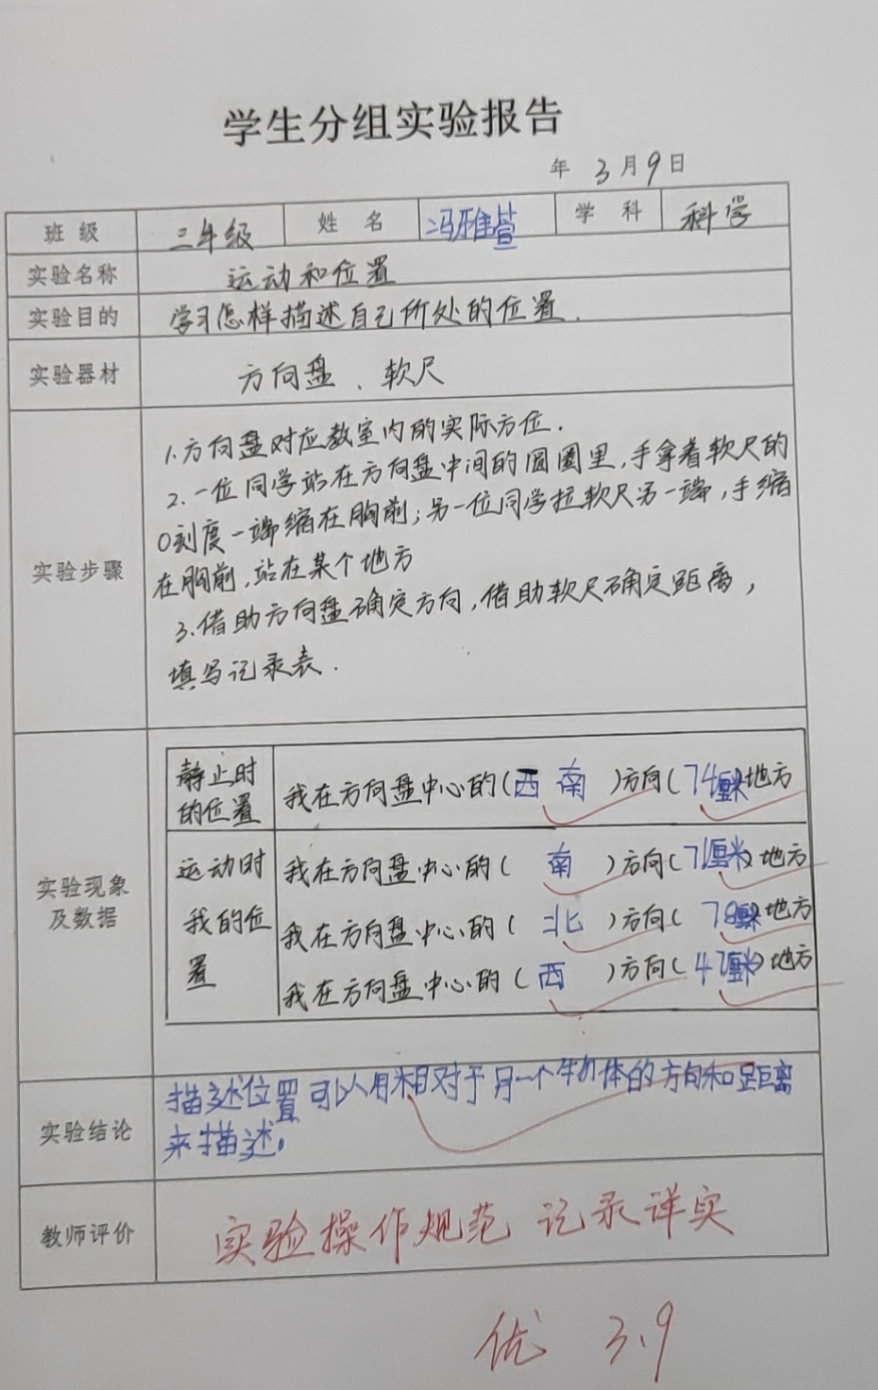 学生分组实验报告
年 3月9日
班级 三年级 姓名 冯雅萱 学科 科学
实验名称 运动和位置
实验目的 学习怎样描述自己所处的位置.
实验器材 方向盘、软尺
实验步骤
1.方向盘对应教室内的实际方位.
2.一位同学站在方向盘中间的圆圈里,手拿着软尺的
0刻度一端缩在胸前;另一位同学拉软尺另一端,手缩
在胸前,站在某个地方
3.借助方向盘确定方向,借助软尺确定距离,
填写记录表.
实验现象
及数据
静止时
的位置
我在方向盘中心的(西南)方向(74厘米)地方
运动时
我的位
置
我在方向盘中心的(南)方向(71厘米)地方
我在方向盘中心的(北)方向(78厘米)地方
我在方向盘中心的(西)方向(47厘米)地方
实验结论
描述位置可以用相对于另一个物体的方向和距离
来描述。
教师评价 实验操作规范 记录详实
优 3.9